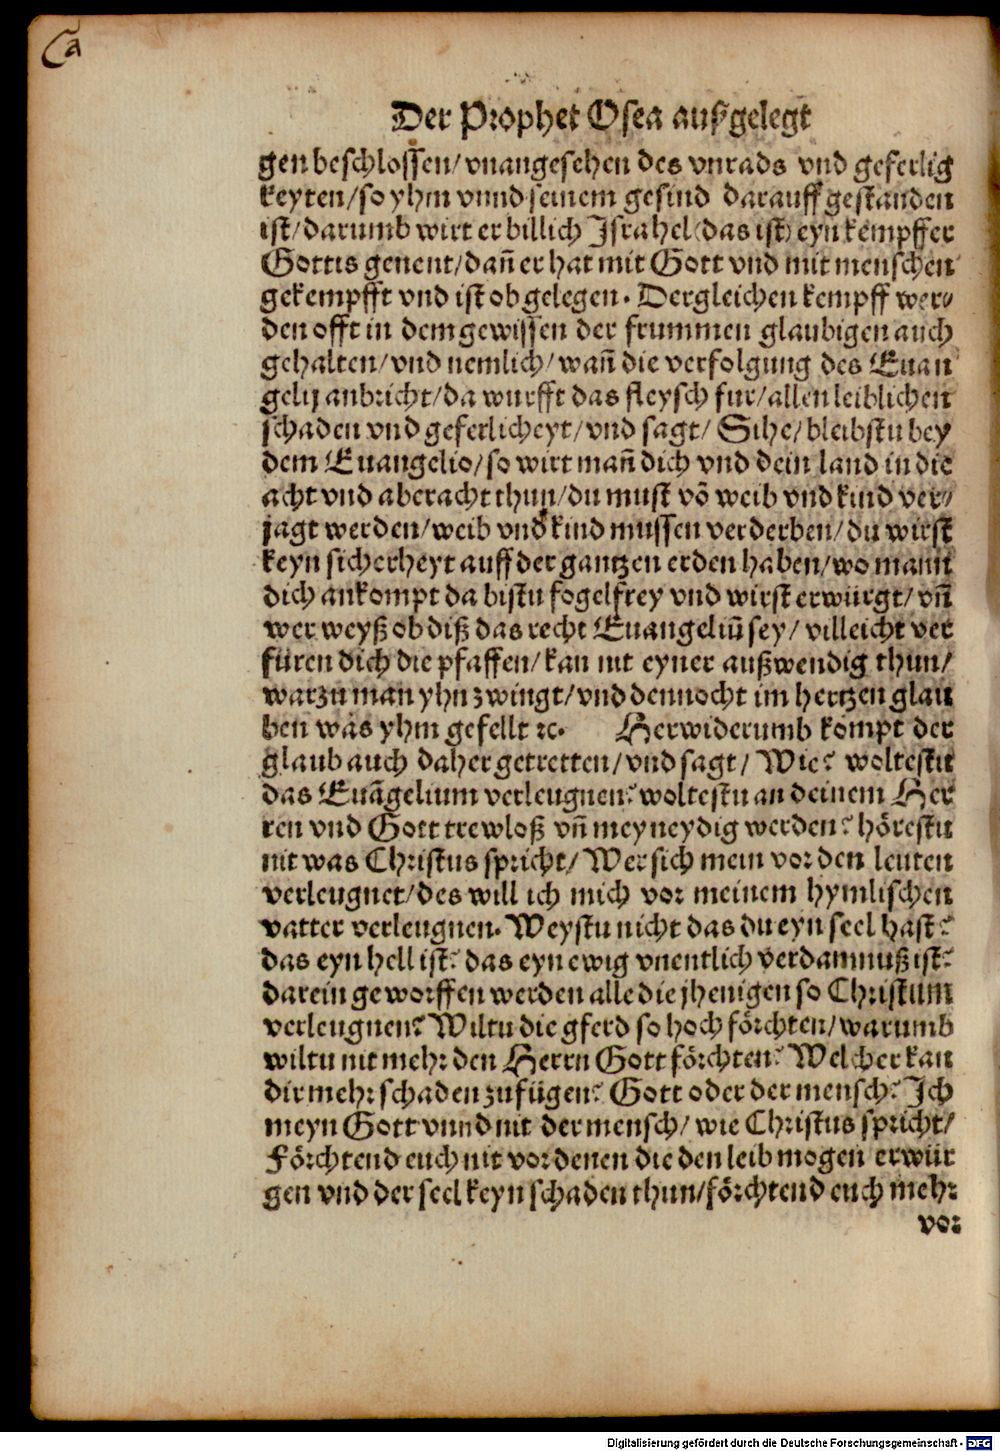 Ca
Der Prophet Osea außgelegt
gen beschlossen/ vnangesehen des vnrads vnd geferlig
keyten/ so yhm vnnd seinem gesind darauff gestanden
ist/ darumb wirt er billich Israhel (das ist) eyn kempffer
Gottis genent/ dañ er hat mit Gott vnd mit menschen
gekempfft vnd ist ob gelegen. Dergleichen kempff wer⸗
den offt in dem gewissen der frummen glaubigen auch
gehalten/ vnd nemlich/ wañ die verfolgung des Euan
gelij anbricht/ da wurfft das fleysch fur/ allen leiblichen
schaden vnd geferlicheyt/ vnd sagt/ Sihe/ bleibstu bey
dem Euangelio/ so wirt mañ dich vnd dein land in die
acht vnd aberacht thun/ du must võ weib vnd kind ver⸗
jagt werden/ weib vnd kind mussen verderben/ du wirst
keyn sicherheyt auff der gantzen erden haben/ wo mann
dich ankompt da bistu fogelfrey vnd wirst erwürgt/ vñ
wer weyß ob diß das recht Euangeliũ sey/ villeicht ver
füren dich die pfaffen/ kan nit eyner außwendig thun/
warzu man yhn zwingt/ vnd dennocht im hertzen glau
ben was yhm gefellt ⁊c. Herwiderumb kompt der
glaub auch daher getretten/ vnd sagt/ Wie? woltestu
das Euãgelium verleugnen? woltestu an deinem Her
ren vnd Gott trewloß vñ meyneydig werden? hörestu
nit was Christus spricht/ Wer sich mein vor den leuten
verleugnet/ des will ich mich vor meinem hymlischen
vatter verleugnen. Weystu nicht das du eyn seel hast?
das eyn hell ist? das eyn ewig vnentlich verdamnuß ist?
darein geworffen werden alle die jhenigen so Christum
verleugnen? Wiltu die gferd so hoch förchten/ warumb
wiltu nit mehr den Herrn Gott förchten? Welcher kan
dir mehr schaden zufügen? Gott oder der mensch? Ich
meyn Gott vnnd nit der mensch/ wie Christus spricht/
Förchtend euch nit vor denen die den leib mogen erwür
gen vnd der seel keyn schaden thun/ förchtend euch mehr
vor
Digitalisierung gefördert durch die Deutsche Forschungsgemeinschaft - DFG